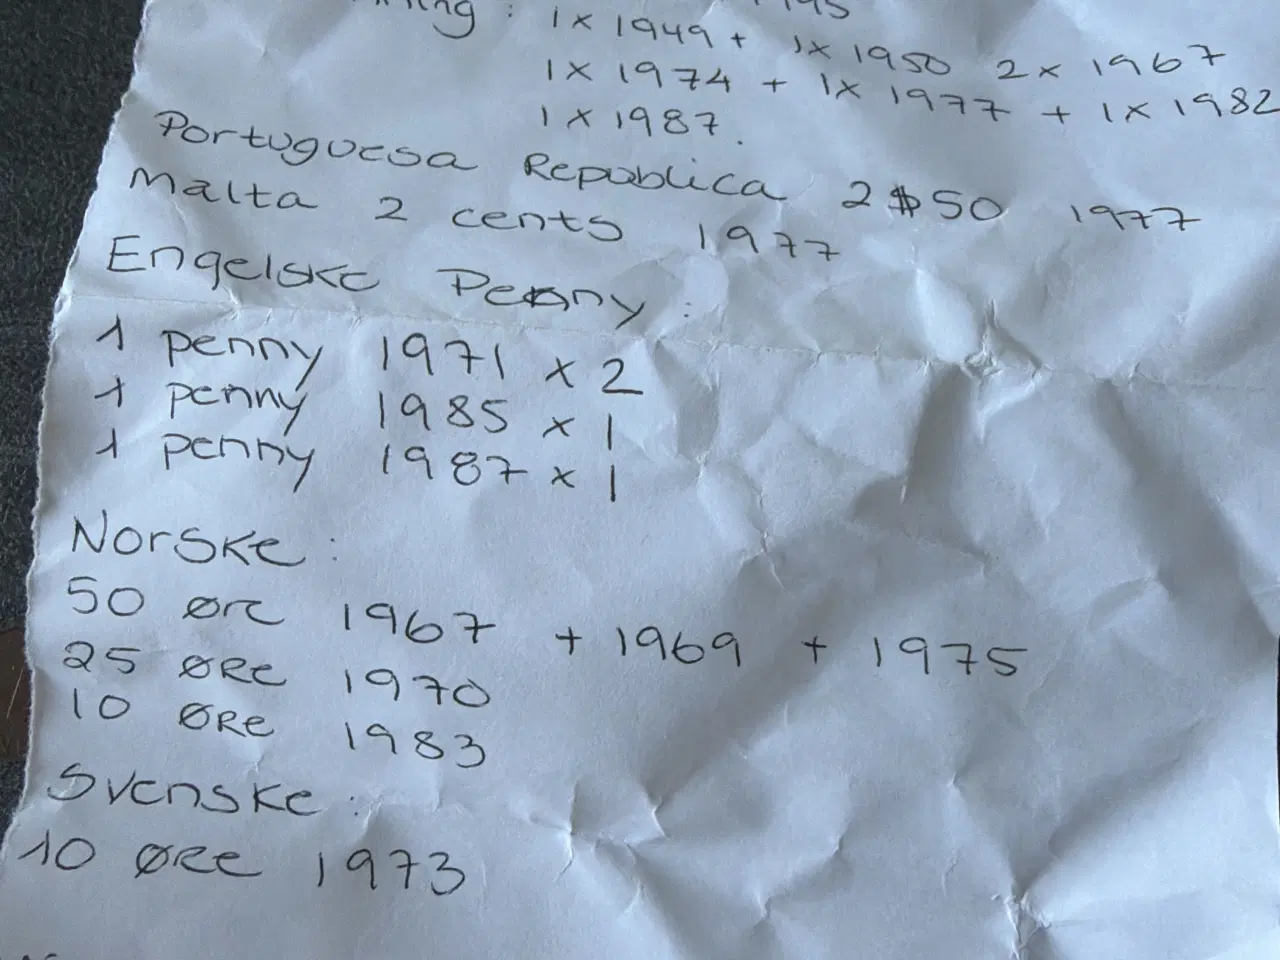 1x 1949 + 1x 1950 2x 1967
1x 1974 + 1x 1977 + 1x 1982
1x 1987.
Portuguesa Republica 2$50 1977
Malta 2 cents 1977
Engelske Penny :
1 penny 1971 x 2
1 penny 1985 x 1
1 penny 1987 x 1
Norske :
50 øre 1967 + 1969 + 1975
25 ØRe 1970
10 ØRe 1983
Svenske :
10 ØRe 1973